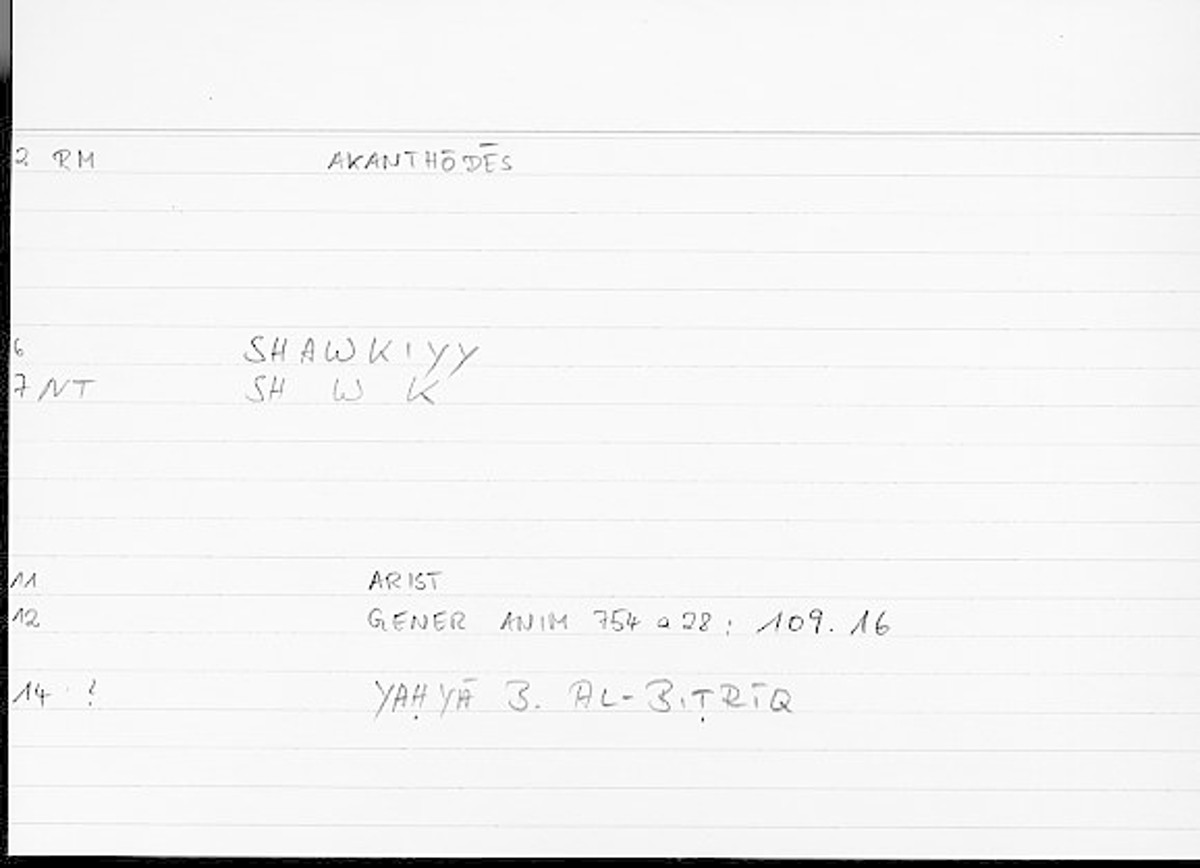 2 RM AKANTHŌDĒS
6 SHAWKIYY
7 NT SH W K
11 ARIST
12 GENER ANIM 754 a 28 : 109. 16
14 ? YAḤYĀ B. AL-BIṬRĪQ